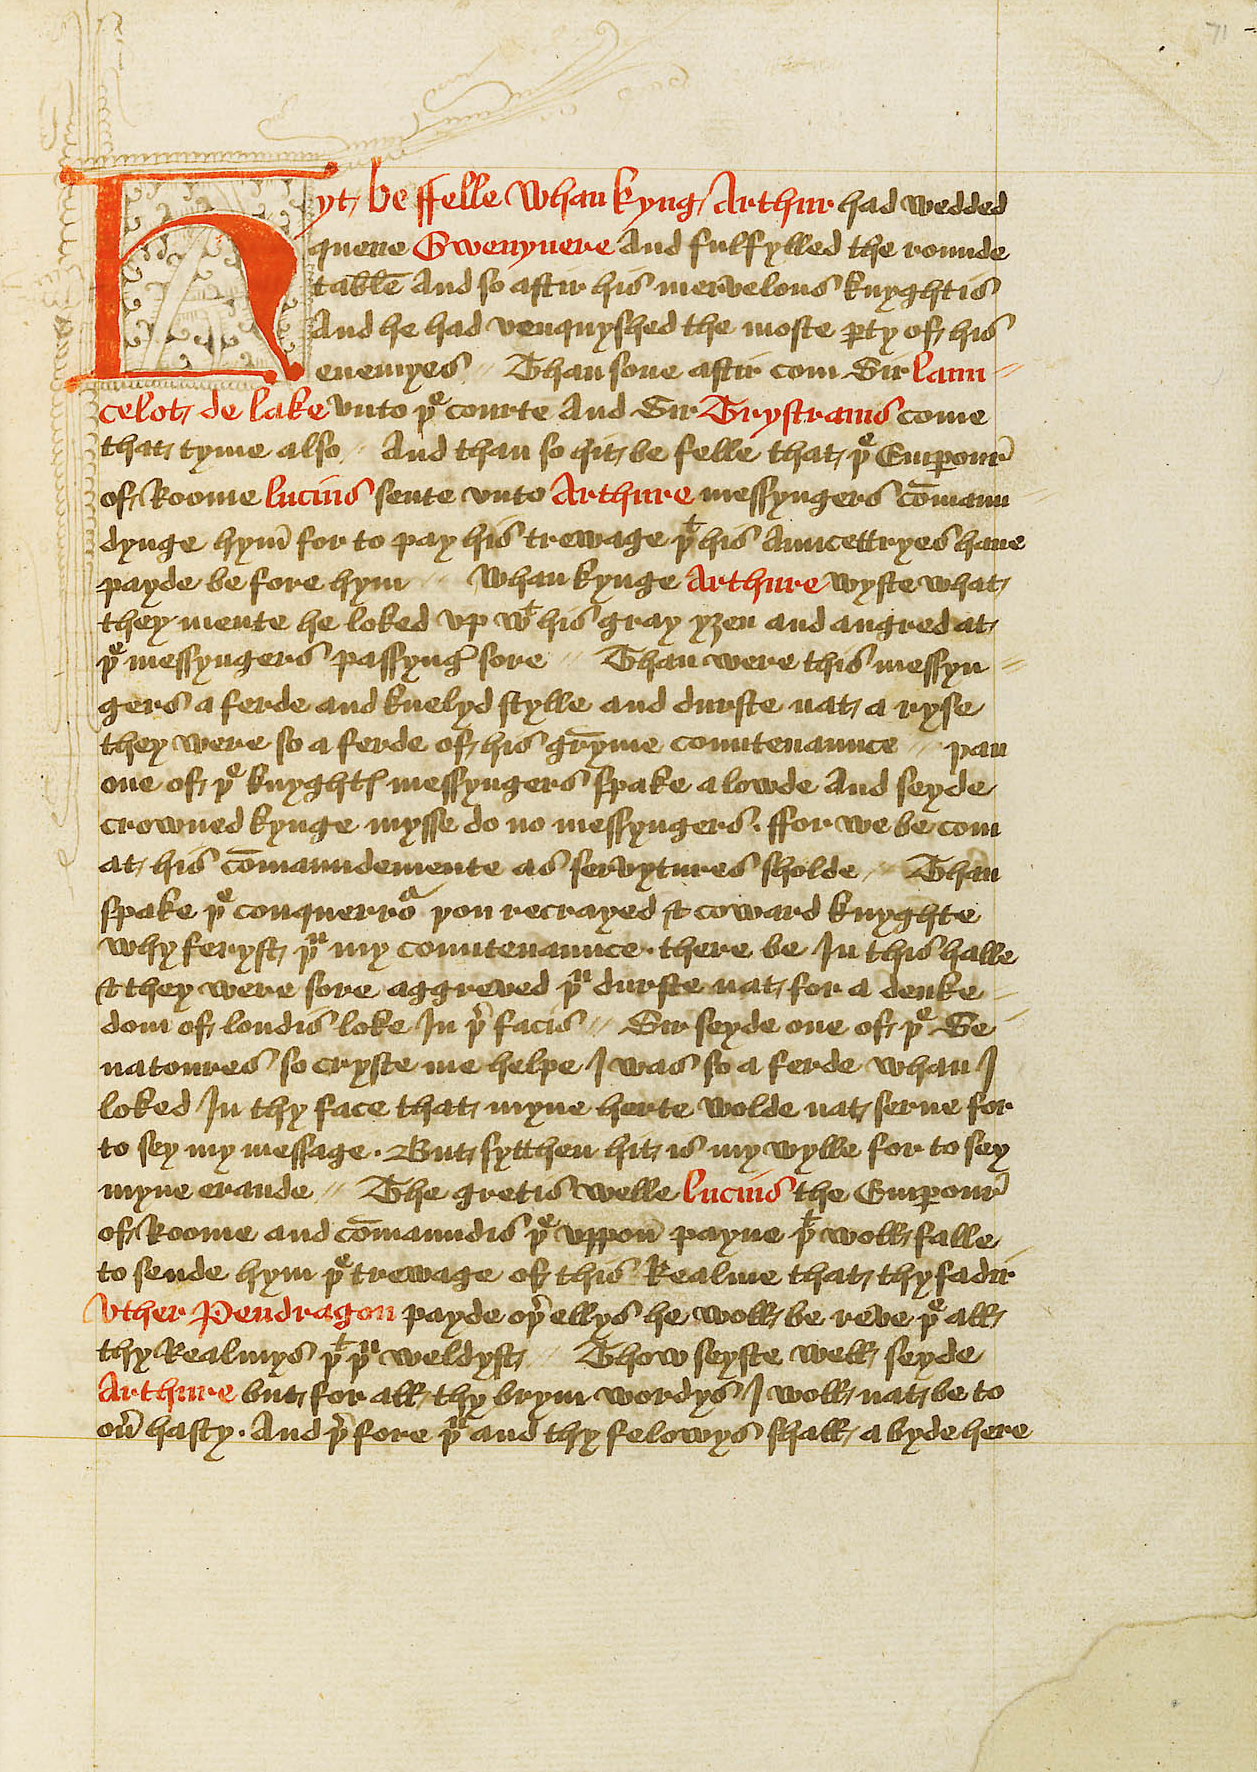 71
Hyt be ffelle whan kyng Arthur had wedded
quene Gwenyvere And fulfylled the rounde
table And so aftir his mervelous knyghtis
And he had venquyshed the moste ꝑty of his
enemyes // Than sone aftir com Sir laun⸗
celot de lake vnto þͤ courte And Sir Trystrams come
that tyme also // And than so hit be felle that þͤ Empour̃
of Roome lucius sente vnto Arthure messyngers cōmaun
dynge hym̃ for to pay his trewage þͭ his Auncettryes haue
payde be fore hym // whan kynge Arthure wyste what
they mente he loked vp wͭ his gray yȝen and angred at
þͤ messyngers passyng̃ sore // Than were this messyn⸗
gers a ferde and knelyd stylle and durste nat a ryse
they were so a ferde of his gr̄yme countenaunce // þan
one of þͤ knyghtꝭ messyngers spake a lowde And seyde
crowned kynge mysse do no messyngers · ffor we be com
at his cōmaundemente as servytures sholde // Than
spake þͤ conquerroͬ þou recrayed & coward knyghte
why feryst þͧ my countenaunce · there be In this halle
& they were sore aggreved þͧ durste nat for a deuke⸗
dom of londis loke In þͬ facis // Sir seyde one of þͤ Se⸗
natoures so cryste me helpe I was so a ferde whan I
loked In thy face that myne herte wolde nat serve for
to sey my message · But sytthen hit is my wylle for to sey
myne erande // The gretis welle lucius the Empour̃
of Roome and cōmaundis þͤ vppon̄ payne þͭ woll falle
to sende hym þͤ trewage of this Realme that thy fadir
Vther Pendragon payde oþ̃ ellys he woll be reve þͤ all
thy Realmys þͭ þͧ weldyst // Thow seyste well seyde
Arthure but for all thy brym wordys I woll nat be to
ou̾ hasty · And þ̾fore þͧ and thy felowys shall a byde here